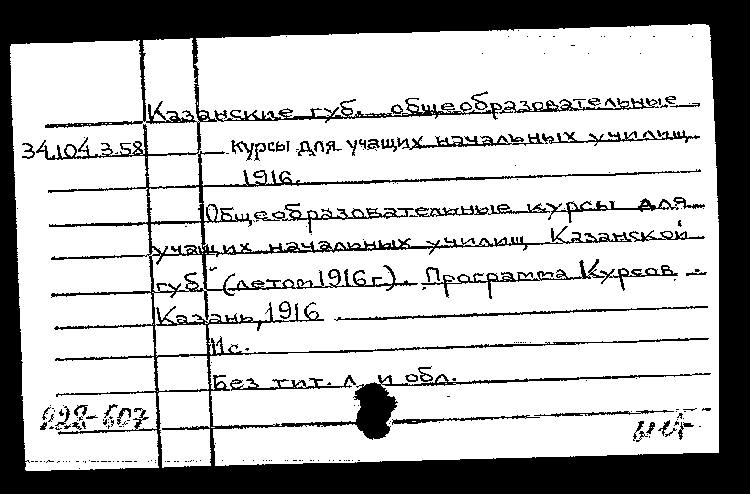 Казанские губ. общеобразовательные
34.104.3.58
курсы для учащих начальных училищ
1916.
Общеобразовательные курсы для
учащих начальных училищ Казанской
губ. (летом 1916 г.). Программа Курсов.
Казань, 1916
11 с.
Без тит. л. и обл.
828-607